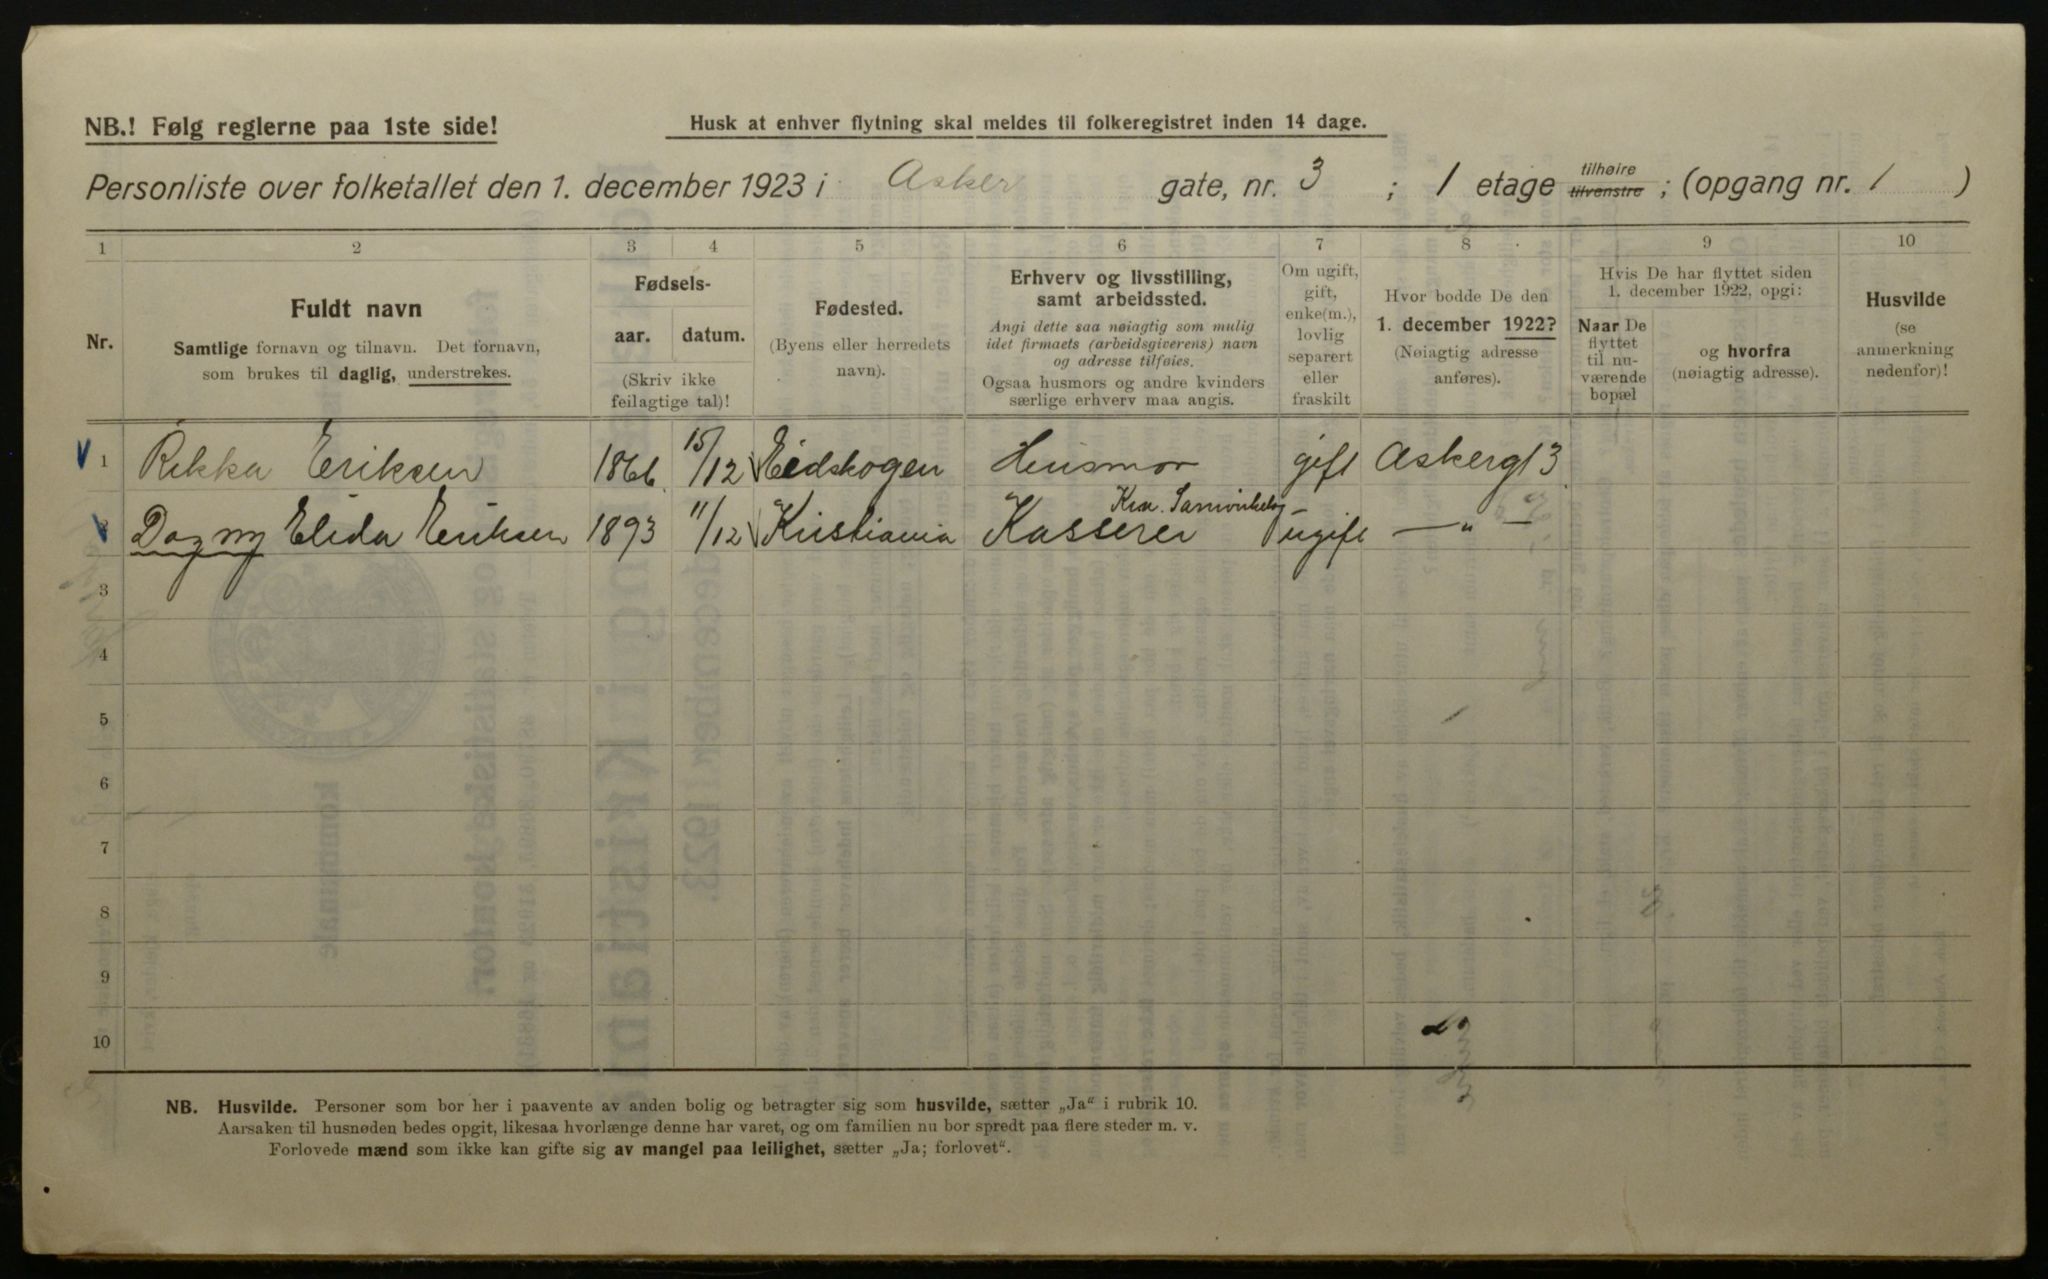 NB.! Følg reglerne paa 1ste side!
Husk at enhver flytning skal meldes til folkeregistret inden 14 dage.
Personliste over folketallet den 1. december 1923 i Asker gate, nr. 3 ; 1 etage tilhøire tilvenstre ; (opgang nr. 1 )
1 2 3 4 5 6 7 8 9 10
Nr.
Fuldt navn
Samtlige fornavn og tilnavn. Det fornavn,
som brukes til daglig, understrekes.
Fødsels-
aar. datum.
(Skriv ikke
feilagtige tal)!
Fødested.
(Byens eller herredets
navn).
Erhverv og livsstilling,
samt arbeidssted.
Angi dette saa nøiagtig som mulig
idet firmaets (arbeidsgiverens) navn
og adresse tilføies.
Ogsaa husmors og andre kvinders
særlige erhverv maa angis.
Om ugift,
gift,
enke(m.),
lovlig
separert
eller
fraskilt
Hvor bodde De den
1. december 1922?
(Nøiagtig adresse
anføres).
Hvis De har flyttet siden
1. december 1922, opgi:
Naar De
flyttet
til nu-
værende
bopæl
og hvorfra
(nøiagtig adresse).
Husvilde
(se
anmerkning
nedenfor)!
1 Rikka Eriksen 1866. 15/12 Eidskogen Husmor gift Askergt 3
2 Dagny Elida Eriksen 1893 11/12 Kristiania Kasserer Kra. Samvirkelag ugift — „ —
3
4
5
6
7
8
9
10
NB. Husvilde. Personer som bor her i paavente av anden bolig og betragter sig som husvilde, sætter „Ja“ i rubrik 10.
Aarsaken til husnøden bedes opgit, likesaa hvorlænge denne har varet, og om familien nu bor spredt paa flere steder m. v.
Forlovede mænd som ikke kan gifte sig av mangel paa leilighet, sætter „Ja; forlovet“.